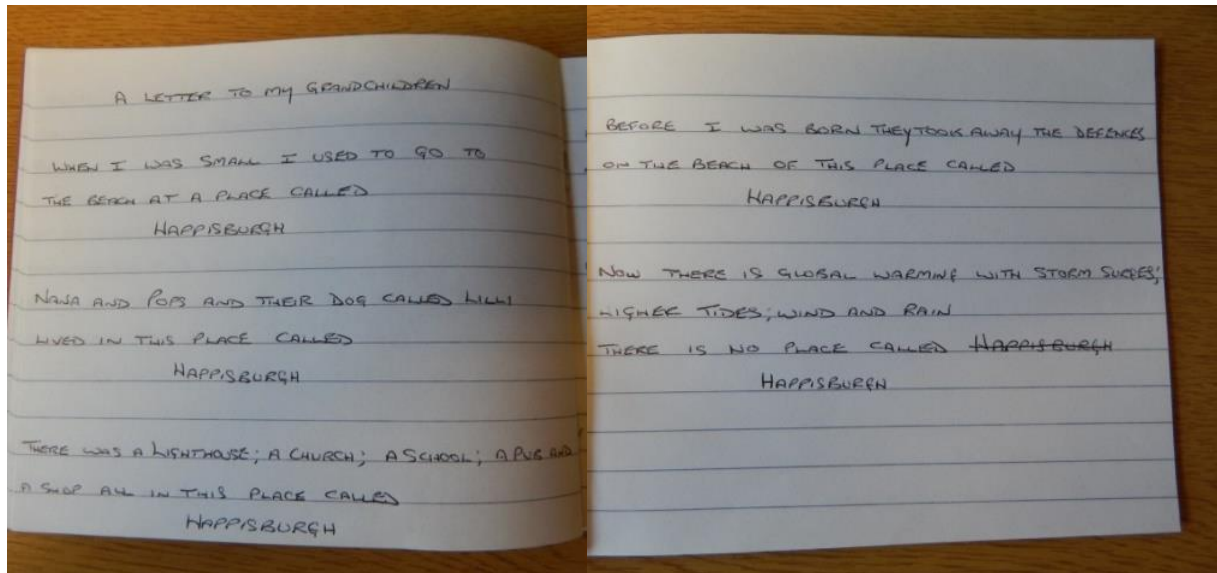 A LETTER TO MY GRANDCHILDREN
WHEN I WAS SMALL I USED TO GO TO
THE BEACH AT A PLACE CALLED
HAPPISBURGH
NANA AND POPS AND THEIR DOG CALLED LILLI
LIVED IN THIS PLACE CALLED
HAPPISBURGH
THERE WAS A LIGHTHOUSE; A CHURCH; A SCHOOL; A PUB AND
A SHOP ALL IN THIS PLACE CALLED
HAPPISBURGH
BEFORE I WAS BORN THEY TOOK AWAY THE DEFENCES
ON THE BEACH OF THIS PLACE CALLED
HAPPISBURGH
NOW THERE IS GLOBAL WARMING WITH STORM SURGES;
HIGHER TIDES; WIND AND RAIN
THERE IS NO PLACE CALLED HAPPISBURGH
HAPPISBURGH